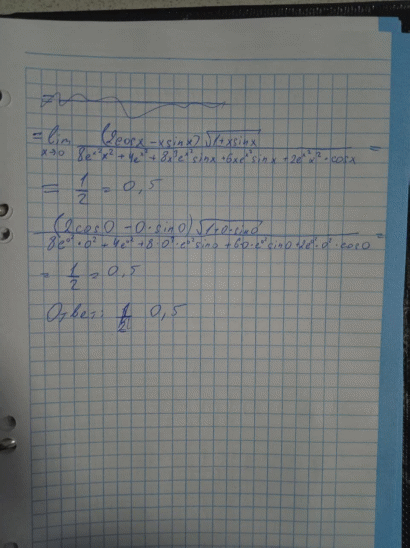 = lim x→0 (2cosx - xsinx) √1+xsinx / 8e^x² x² + 4e^x² + 8x³e^x² sinx + 6xe^x² sinx + 2e^x² x² · cosx =
= 1/2 = 0,5
(2cos0 - 0·sin0) √1+0·sin0 / 8e^0² · 0² + 4e^0² + 8·0³·e^0² sin0 + 6·0·e^0² sin0 + 2e^0² · 0² · cos0 =
= 1/2 = 0,5
Ответ: 1/2 0,5